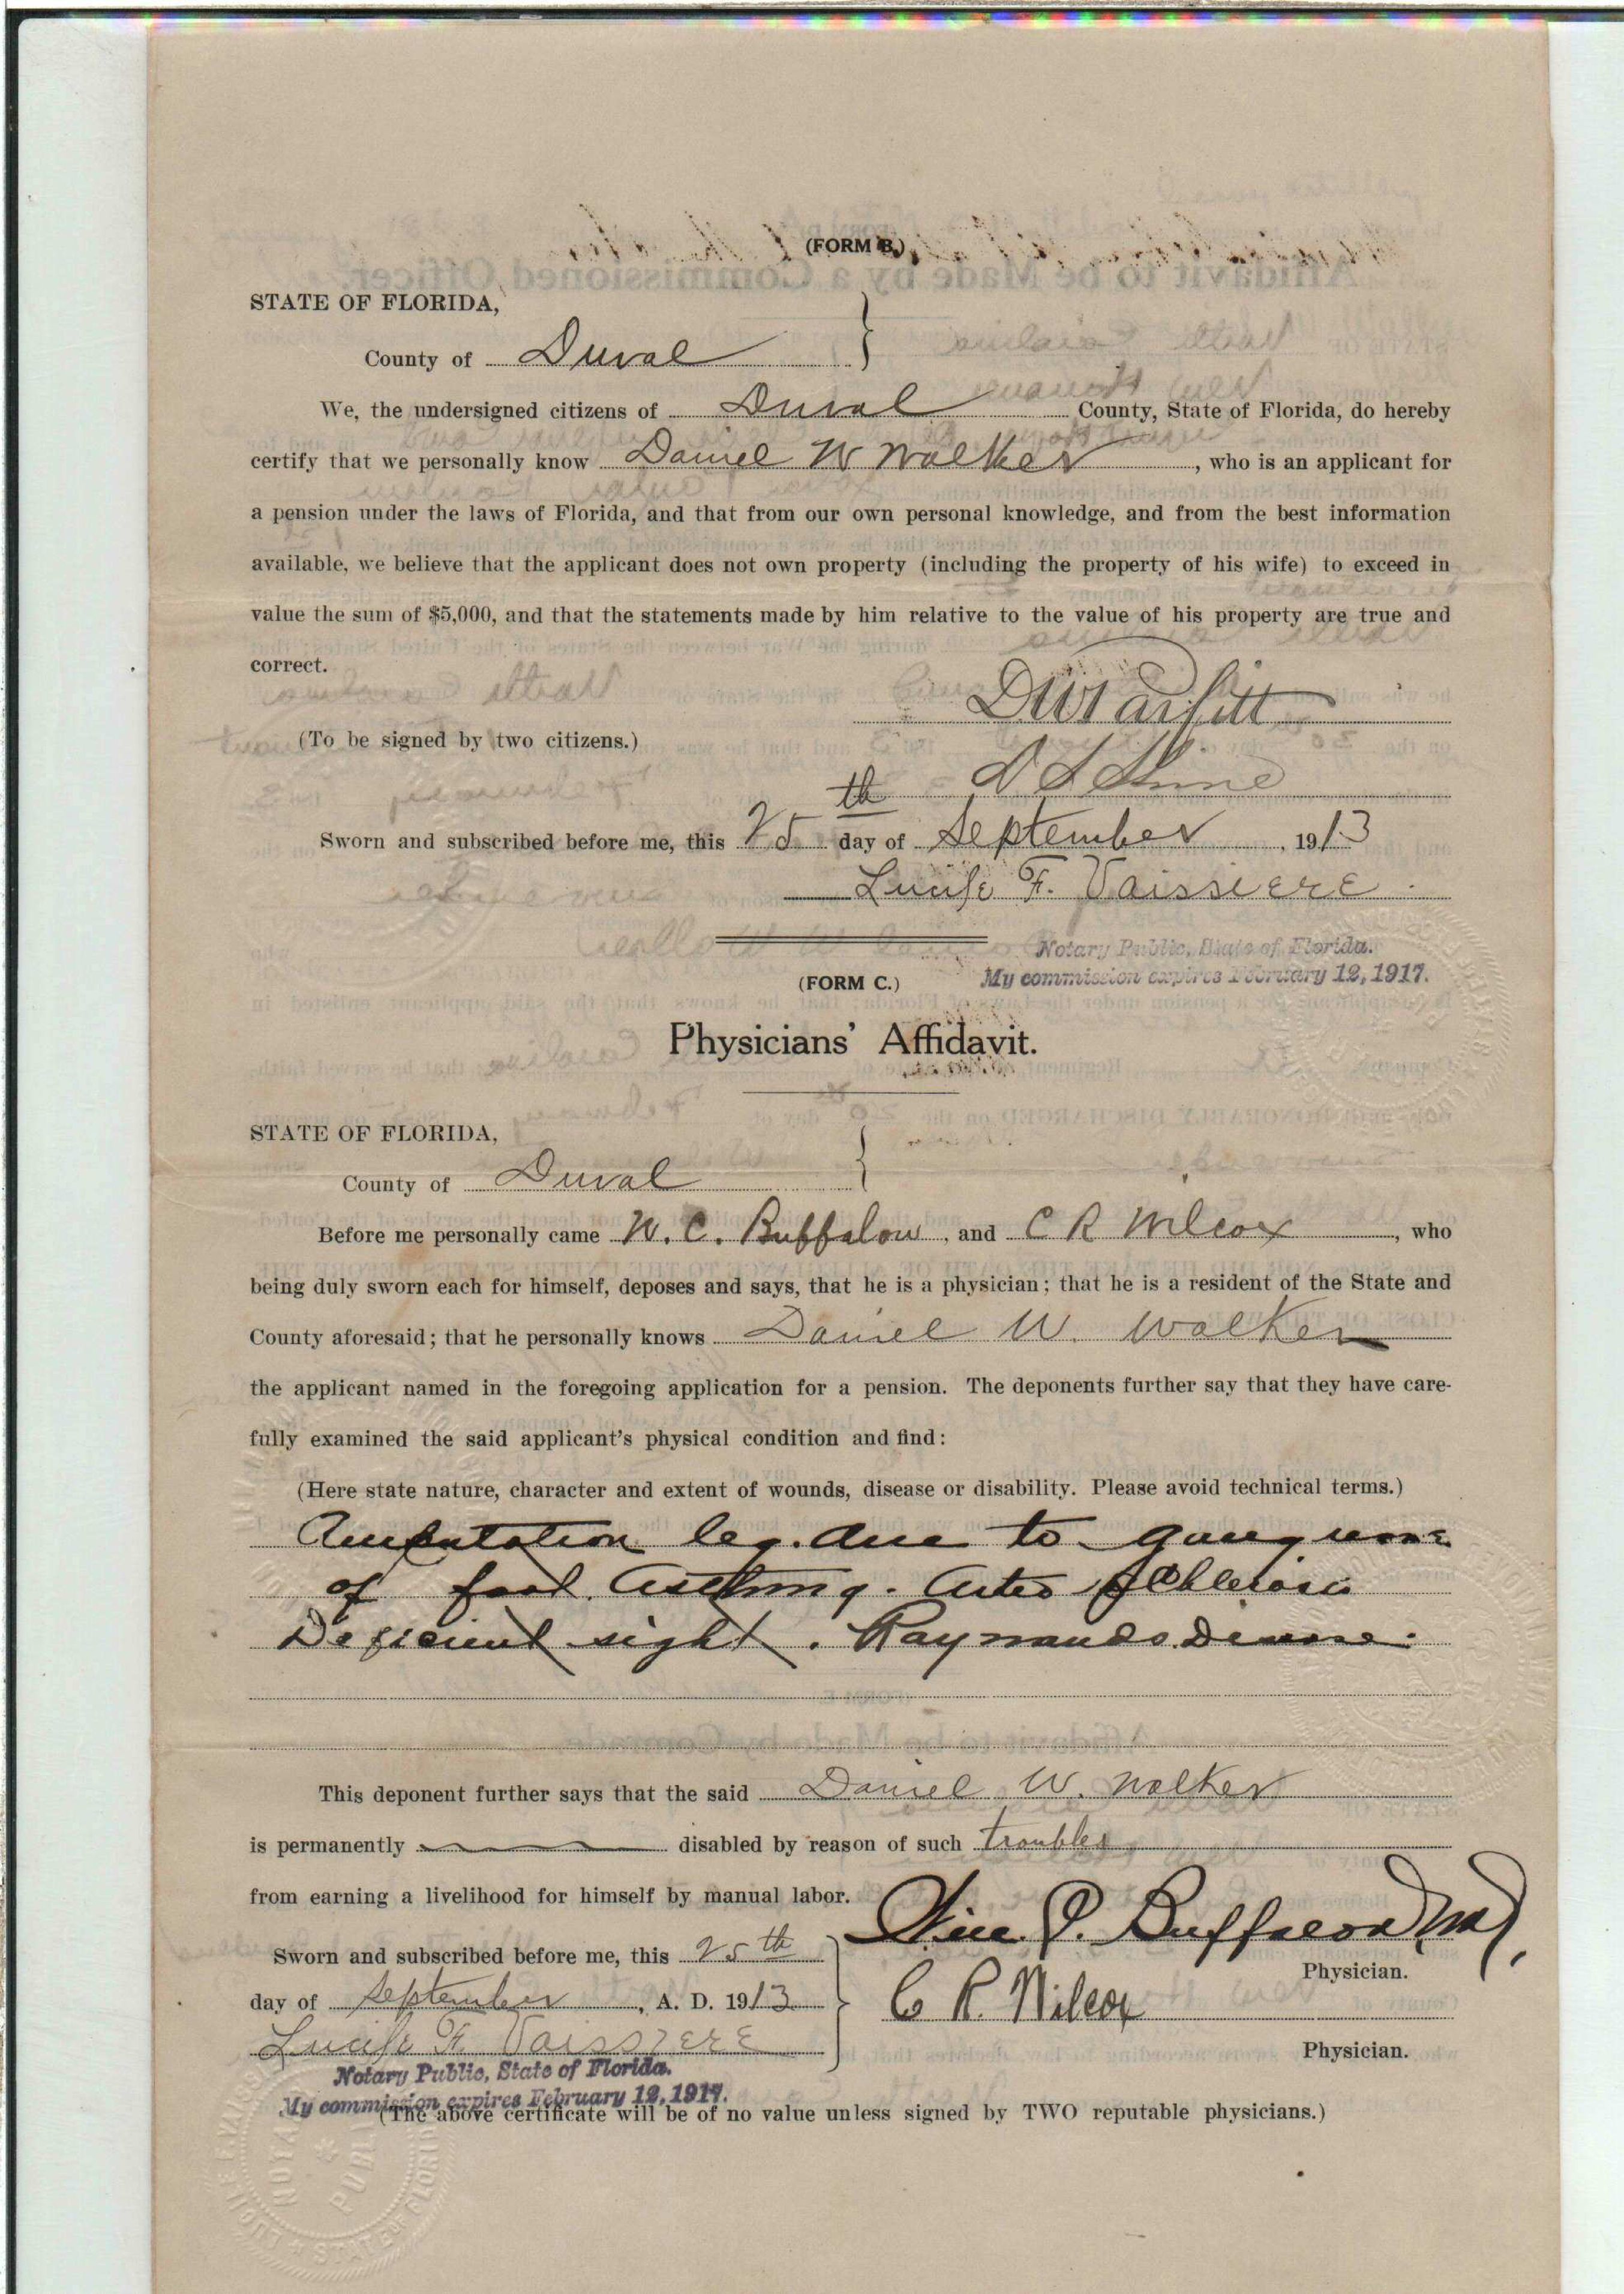 (FORM B.)
STATE OF FLORIDA,
County of Duval
We, the undersigned citizens of Duval County, State of Florida, do hereby
certify that we personally know Daniel W Walker, who is an applicant for
a pension under the laws of Florida, and that from our own personal knowledge, and from the best information
available, we believe that the applicant does not own property (including the property of his wife) to exceed in
value the sum of $5,000, and that the statements made by him relative to the value of his property are true and
correct.
D W Parfitt
(To be signed by two citizens.)
D S Shine
Sworn and subscribed before me, this 25th day of September, 1913
Lucile F. Vaissiere
Notary Public, State of Florida.
My commission expires February 12, 1917.
(FORM C.)
Physicians' Affidavit.
STATE OF FLORIDA,
County of Duval
Before me personally came W. C. Buffalow, and C R Wilcox, who
being duly sworn each for himself, deposes and says, that he is a physician; that he is a resident of the State and
County aforesaid; that he personally knows Daniel W. Walker
the applicant named in the foregoing application for a pension. The deponents further say that they have care-
fully examined the said applicant's physical condition and find:
(Here state nature, character and extent of wounds, disease or disability. Please avoid technical terms.)
Amputation leg. due to gangrene
of foot. Asthma. Arterio
Deficient sight. Raynauds Disease.
This deponent further says that the said Daniel W. Walker
is permanently disabled by reason of such troubles
from earning a livelihood for himself by manual labor.
Buffalow M.D.
Physician.
Sworn and subscribed before me, this 25th
day of September, A. D. 1913
C R. Wilcox
Lucile F. Vaissiere
Physician.
Notary Public, State of Florida.
My commission expires February 12, 1917.
(The above certificate will be of no value unless signed by TWO reputable physicians.)